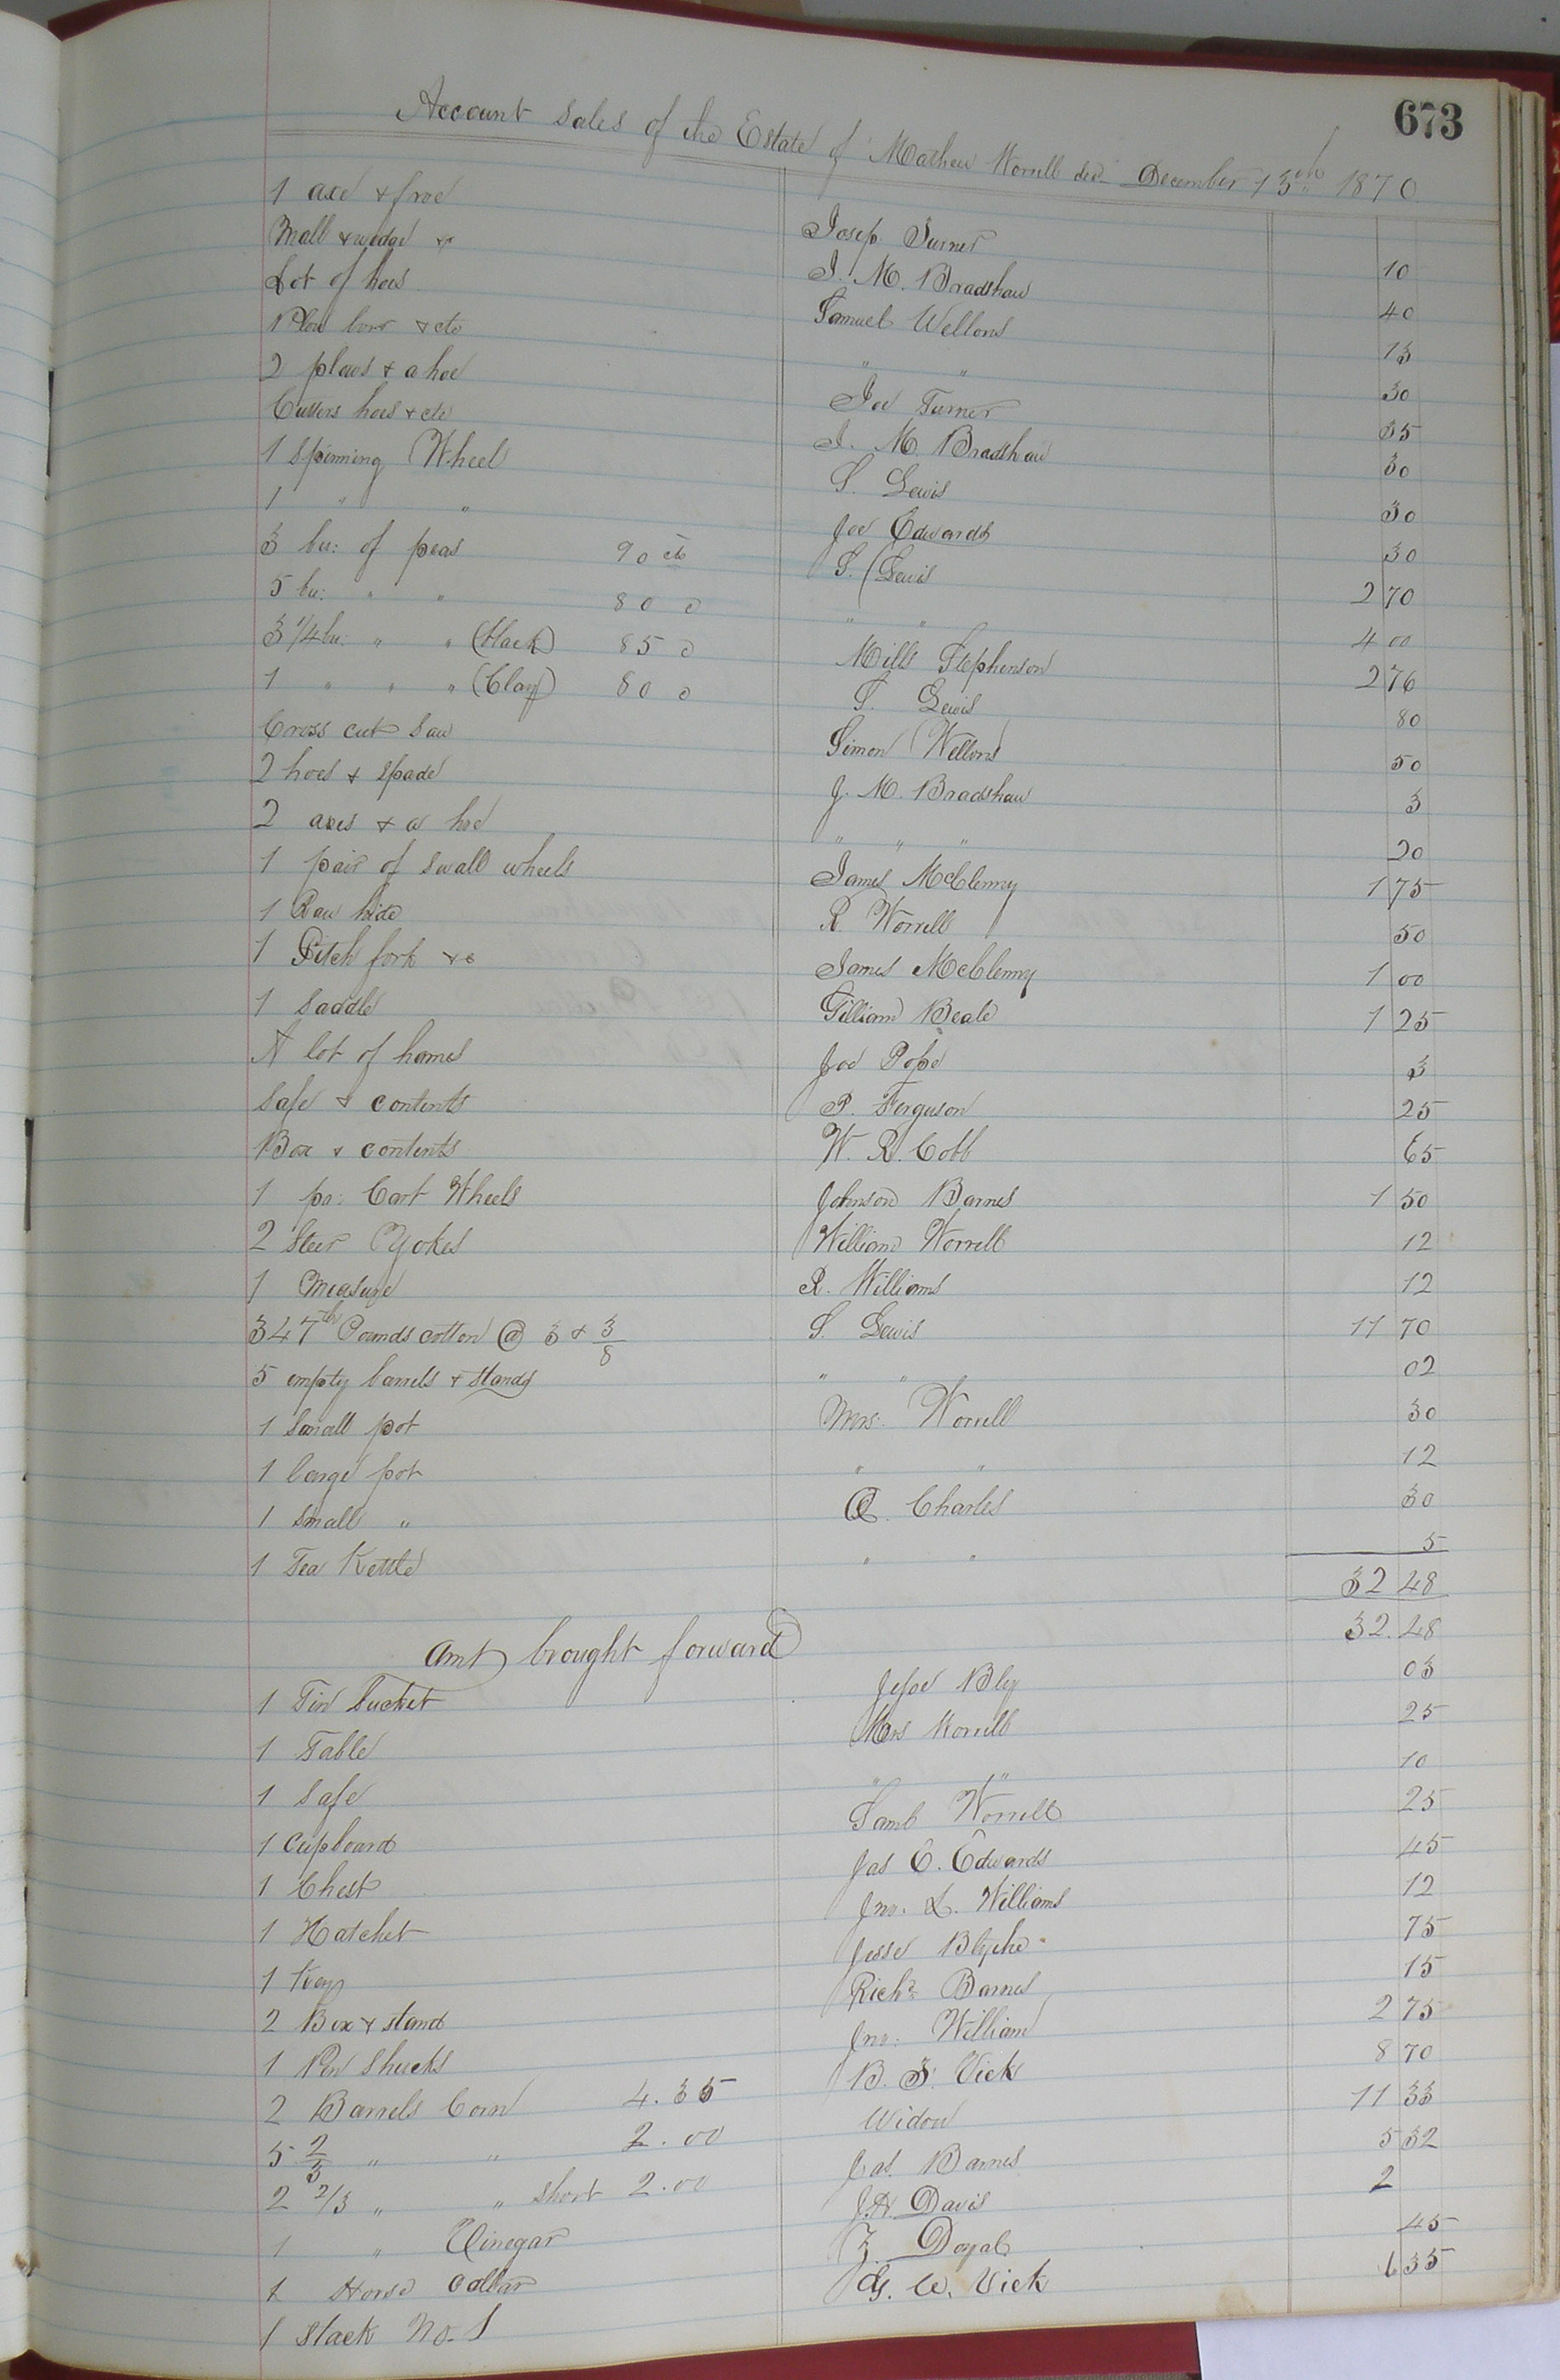 673
Account Sales of the Estate of Mathew Worrell decd December 13th 1870
1 axe & froe Josep Turner 10
Mall & wedge & J. M. Bradshaw 40
Lot of hoes Samuel Wellons 15
Plow &c " " 30
2 plows & a hoe Joe Turner 35
Cutters hoes & etc J. M. Bradshaw 30
1 Spinning Wheel S. Lewis 30
1 " " Joe Edwards 30
3 bu: of peas 90 cts S. Lewis 2 70
5 bu: " " 80 c " " 4 00
3 1/4 bu: " " (black) 85 c Mills Stephenson 2 76
1 " " " (Clay) 80 c S. Lewis 80
Cross cut Saw Simon Wellons 50
2 hoes & Spade J. M. Bradshaw 3
2 axes & a hoe " " " 20
1 pair of Small wheels James McClenny 1 75
1 Raw hide R. Worrell 50
1 Pitch fork &c James McClenny 1 00
1 Saddle Gilliam Beale 1 25
A lot of hames Joe Pope 3
Safe & contents P. Ferguson 25
Box & contents W. R. Cobb 65
1 pr: Cart Wheels Johnson Barnes 1 50
2 Steer Yokes William Worrell 12
1 Measure R. Williams 12
347 th Pounds cotton @ 3 & 3/8 S. Lewis 11 70
5 empty barrels & stands " " 02
1 Small pot Mrs. Worrell 30
1 large pot " " 12
1 small " Q. Charles 30
1 Tea Kettle " " 5
32 48
Amt brought forward 32.48
1 Tin bucket Jesse Bly 03
1 Table Mrs Worrell 25
1 Safe " " 10
1 Cupboard Saml Worrell 25
1 Chest Jas E. Edwards 45
1 Hatchet Jno. L. Williams 12
1 Keg Jesse Blythe 75
2 Box & stand Richd Barnes 15
1 Pen Shucks Jno. William 2 75
2 Barrels Corn 4.35 B. F. Vick 8 70
5 2/3 " " 2.00 Widow 11 33
2 2/3 " " Short 2.00 Jas. Barnes 5 32
1 " Vinegar J. H. Davis 2
1 Horse Collar Z. Doyal 45
1 Stack No. 1 G. W. Vick 6 35